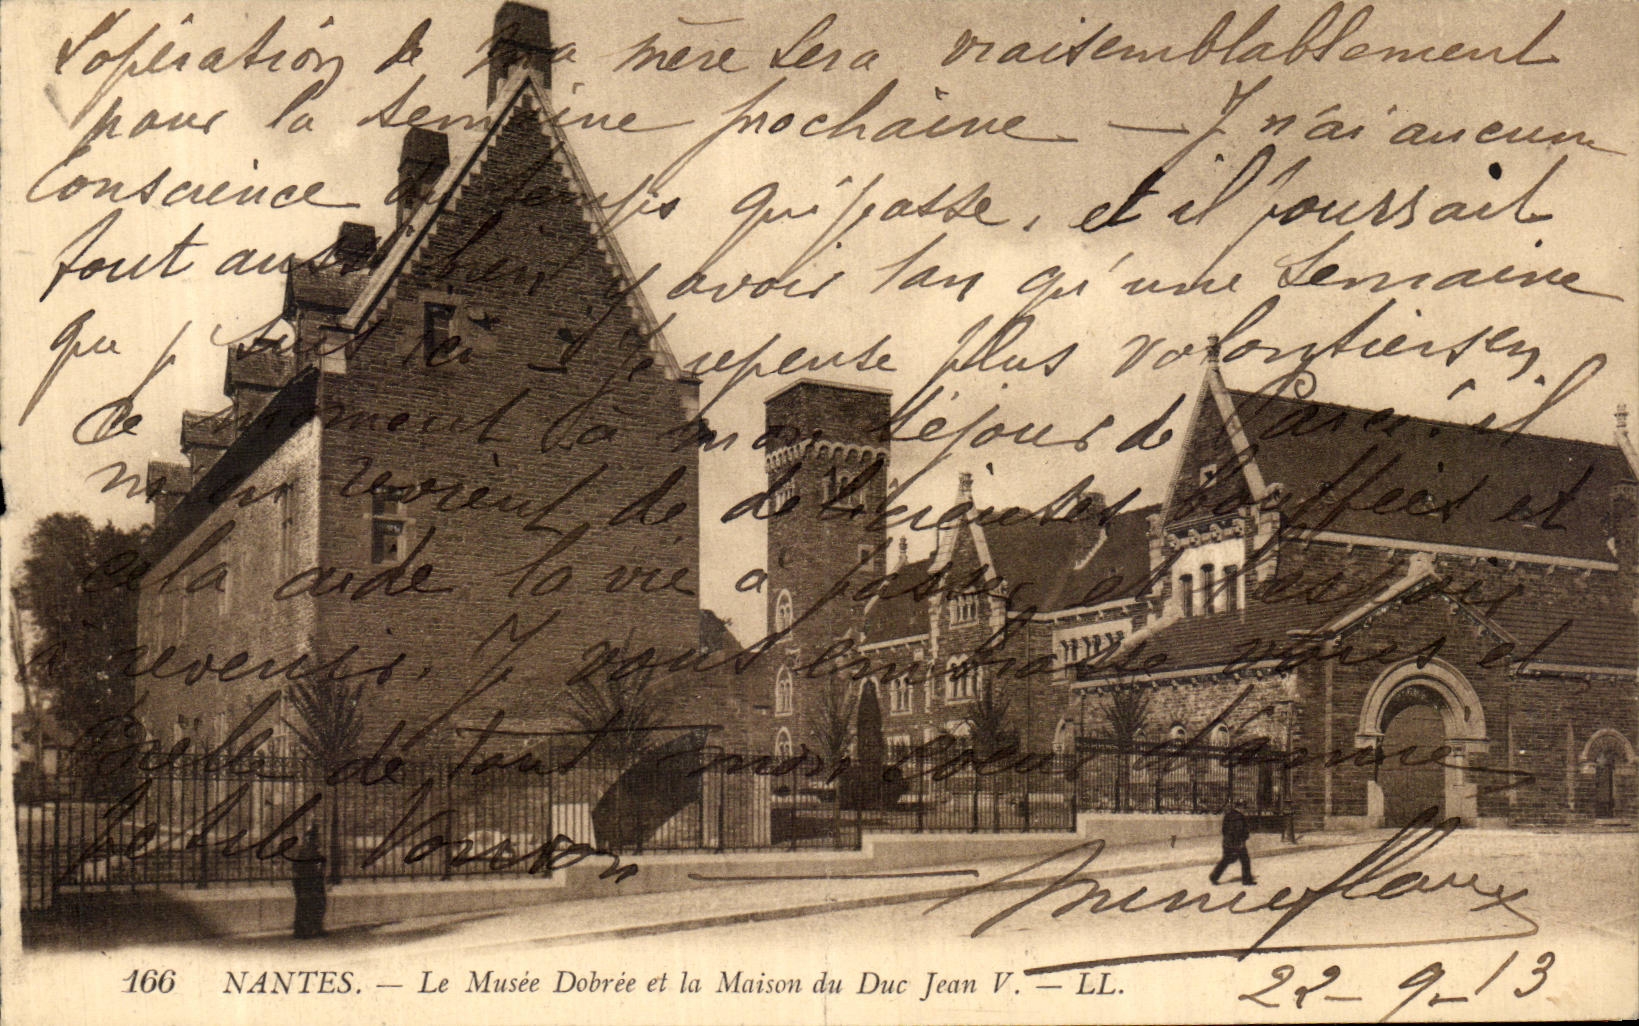 L'opération de ma mère sera vraisemblablement
pour la semaine prochaine — J n'ai aucun
conscience du temps qui passe, et il pourrait
tout aussi bien y avoir 1 an qu'une semaine
que j suis ici — Je repense plus volontiers en
ce moment à mon séjour de Paris : il
m'en revient de délicieuses bouffées et
cela aide la vie à passer et l'espoir
à revenir. J vous embrasse vous et
de tout mon coeur d'amie
petite
22-9-13
166 NANTES. — Le Musée Dobrée et la Maison du Duc Jean V. — LL.